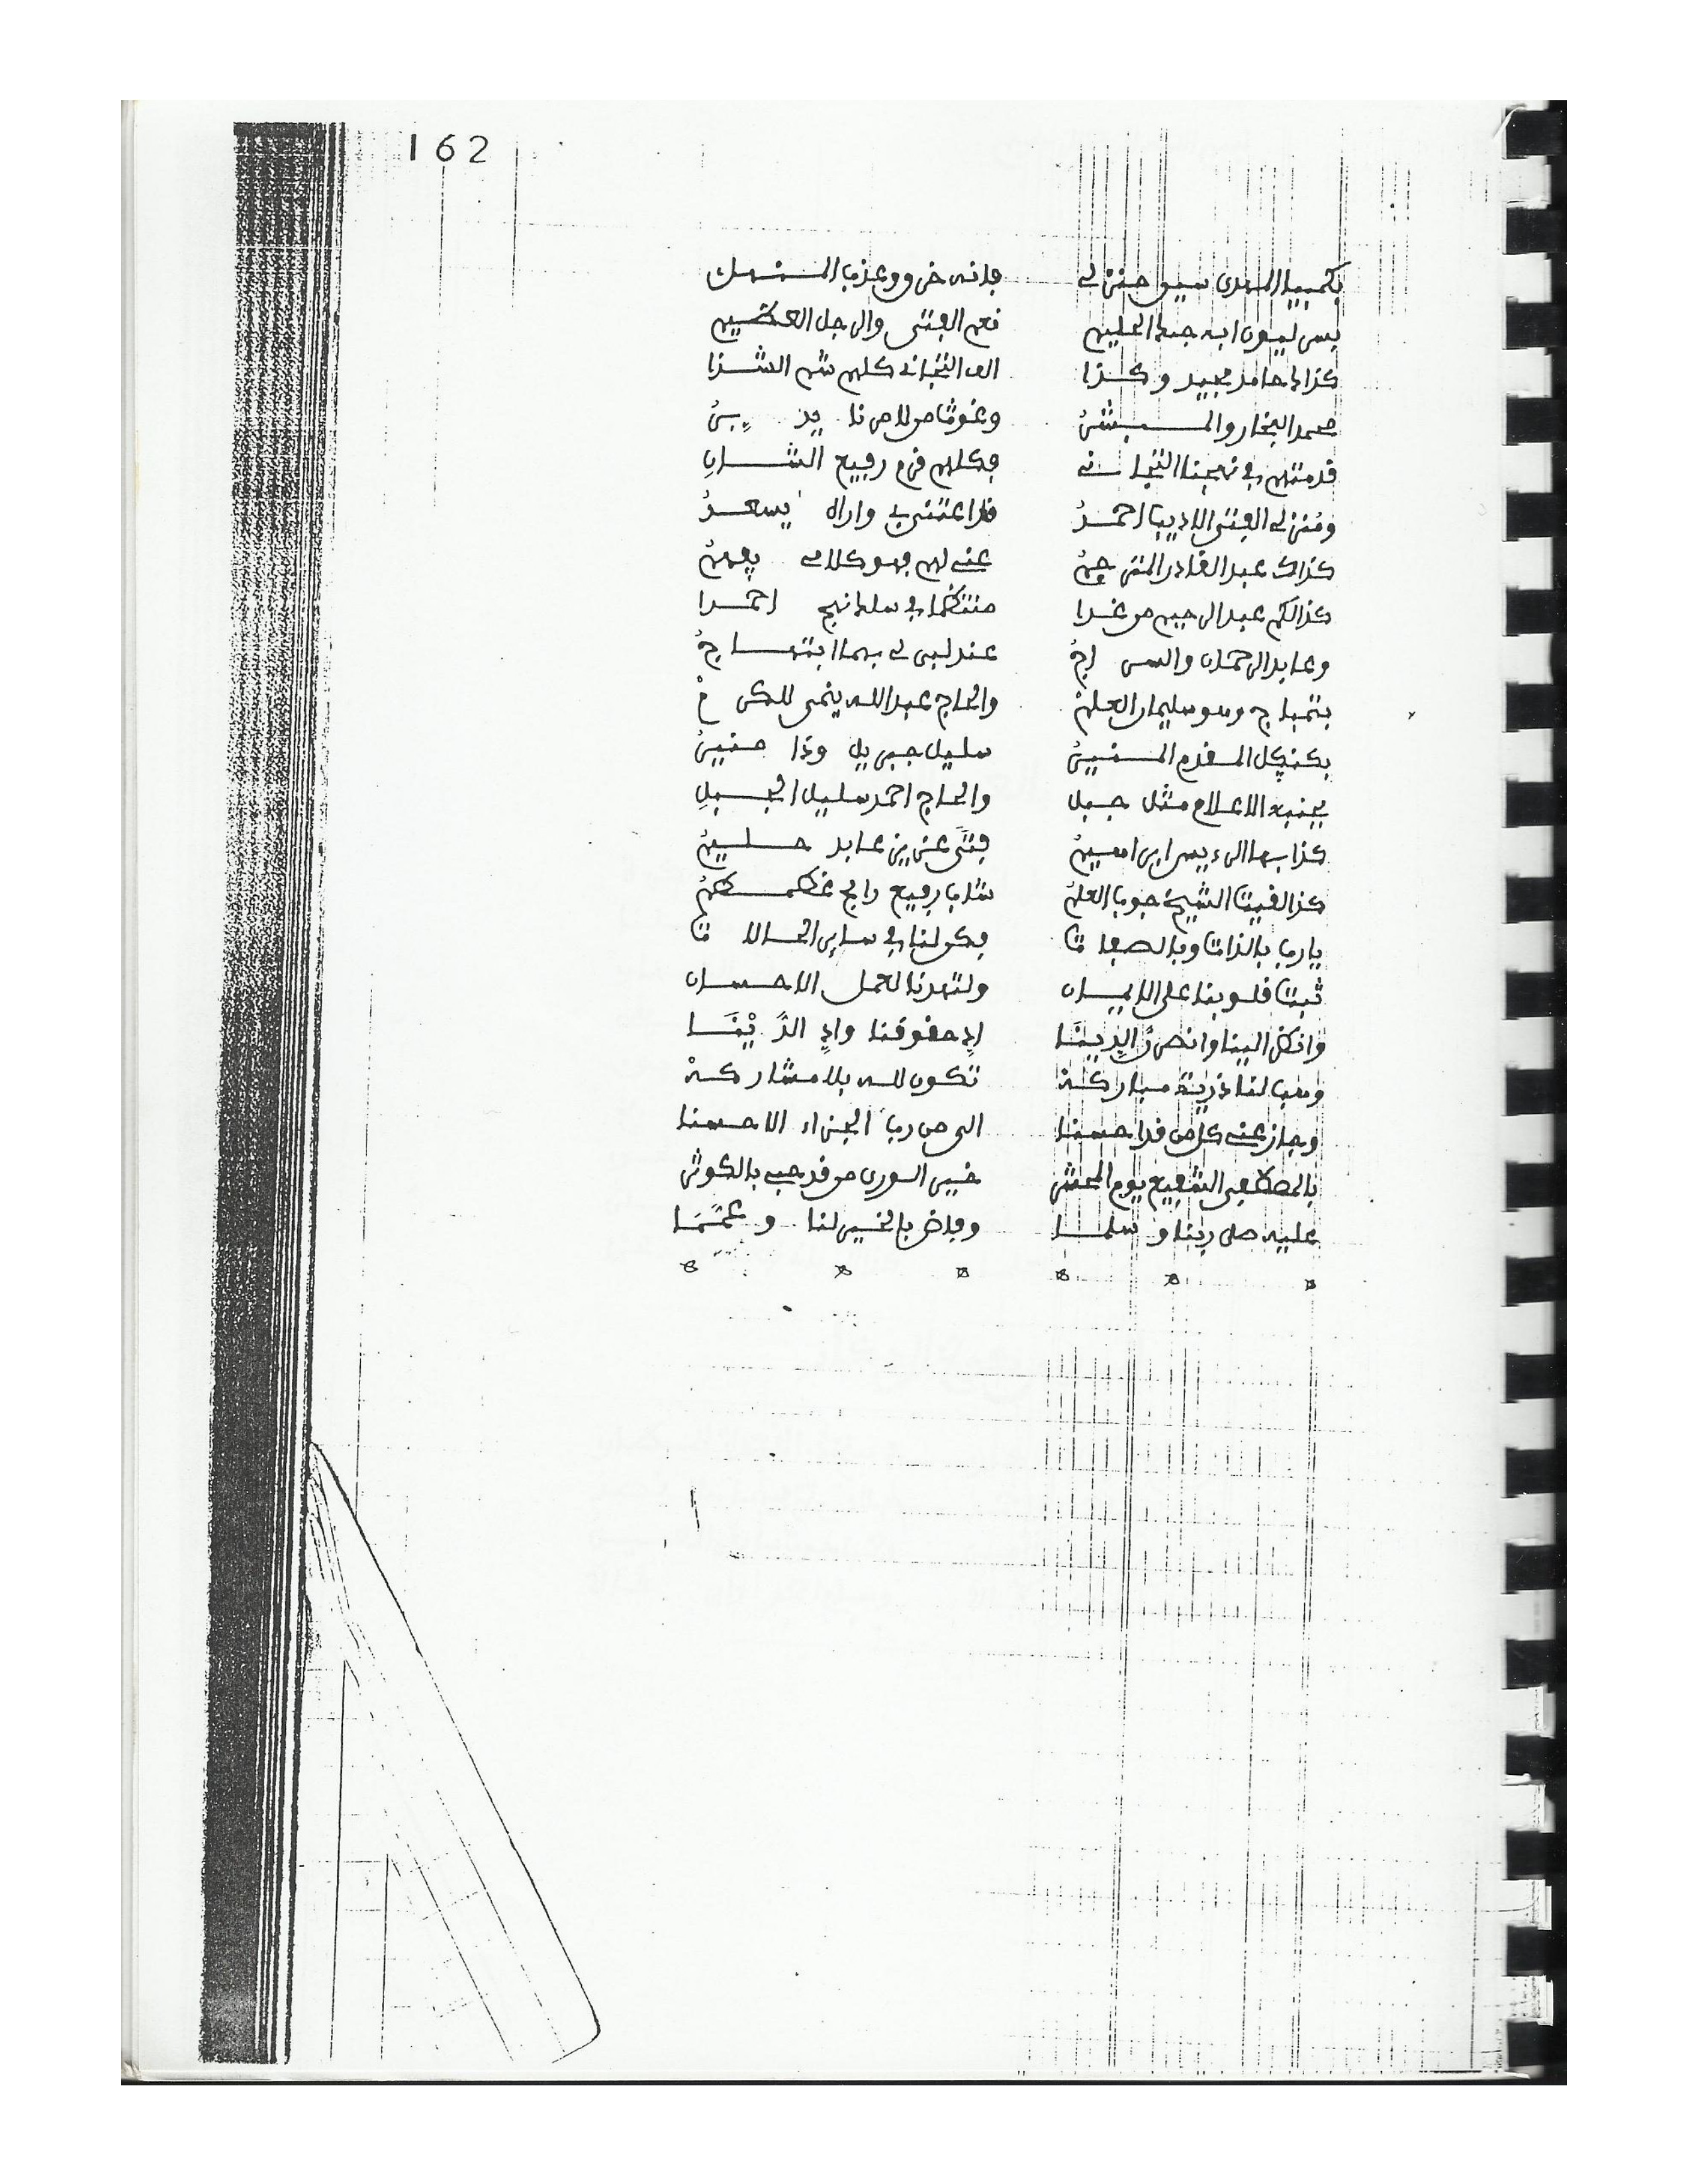 162
بكمبيا المهدى سيو منزلى فإنه خر و وعذب المنهل
بسرليون ابه جمد الحليم نعم الفتى والرجل العظيم
كذا حامد مجيد وكذا الف التجانى كلهم شم الشذا
محمد البخار والمبشر وغوث من لامرنا يدبر
قدمتهم فى نهجنا التجانى فكلهم قرم رفيع الشان
ومنزلى الفتى الاديب احمد قد اعتنى بى واراه يسعد
كذاك عبد القادر المترجم عنى لهم فهو كلامى يفهم
كذالكم عبد الرحيم من غدا منتظما فى سلط نهج احمدا
وعابد الرحمان والسراج عند لبى لى بهما ابتهاج
بتمباج وهو سليمان العلم والحاج عبد الله ينمى للكرم
بكنكل المقدم المنير سليل جبريل وذا منير
بجنبه الاعلام مثل جبل والحاج احمد سليل الجبل
كذا بها الرءيس ابراهيم فتى عزيز عابد حليم
كذا لقيت الشيخ جوب العلم شاب رفيع رابح غطمطم
يا رب بالذات وبالصفات فكن لنا فى ساير الحالات
ثبت قلوبنا على الايمان ولتهدنا لعمل الاحسان
وانظر الينا وانصر الدينا اد حقوقنا واد الدينا
وهب لنا ذرية مباركه تكون لله بلا مشاركه
وجاز عنى كل من قد احسنا الى من رب الجزاء الاحسنا
بالمصطفى الشفيع يوم المحشر خير الورى من قد حبى بالكوثر
عليه صلى ربنا وسلما وفاض بالخير لنا وعمما